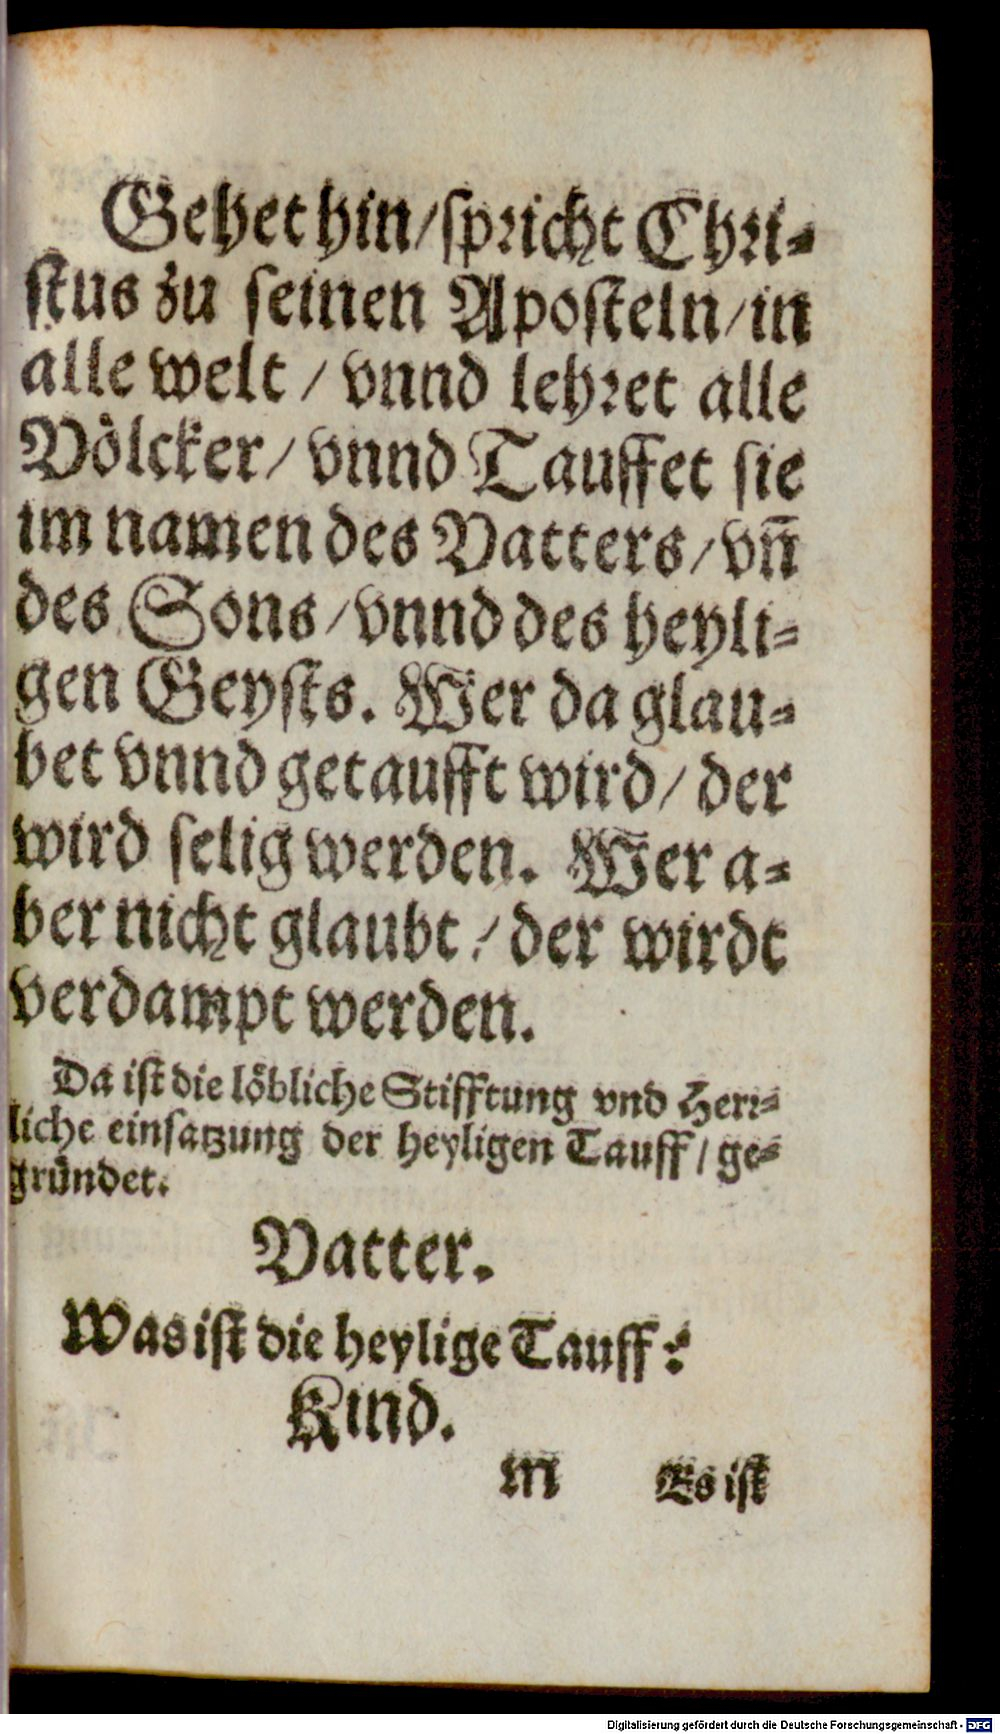 Gehet hin/ſpricht Chri⸗
ſtus zu ſeinen Apoſteln/in
alle welt / vnnd lehret alle
Völcker/ vnnd Tauffet ſie
im namen des Vatters/vn̄
des Sons/vnnd des heyli⸗
gen Geyſts. Wer da glau⸗
bet vnnd getaufft wird/ der
wird ſelig werden. Wer a⸗
ber nicht glaubt / der wirdt
verdampt werden.
Da iſt die löbliche Stifftung vnd Herr⸗
liche einſatzung der heyligen Tauff/ ge⸗
gründet.
Vatter.
Was iſt die heylige Tauff?
Kind.
m Es iſt
Digitalisierung gefördert durch die Deutsche Forschungsgemeinschaft - DFG